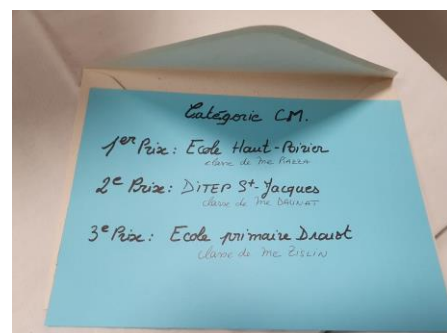 Catégorie CM.
1er Prix : Ecole Haut-Poirier
classe de Me PIAZZA
2e Prix : DITEP St-Jacques
classe de Me DAUNAT
3e Prix : Ecole primaire Drouot
classe de Me ZISLIN